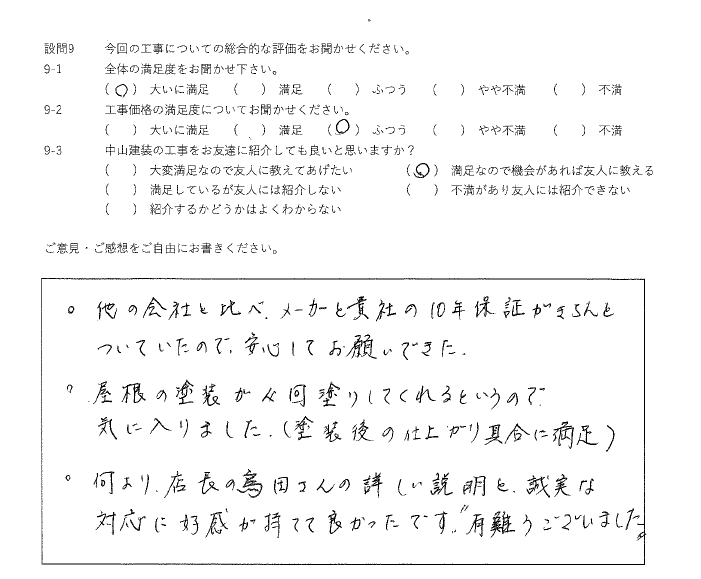 設問9 今回の工事についての総合的な評価をお聞かせください。
9-1 全体の満足度をお聞かせ下さい。
(○) 大いに満足 ( ) 満足 ( ) ふつう ( ) やや不満 ( ) 不満
9-2 工事価格の満足度についてお聞かせください。
( ) 大いに満足 ( ) 満足 (○) ふつう ( ) やや不満 ( ) 不満
9-3 中山建装の工事をお友達に紹介しても良いと思いますか？
( ) 大変満足なので友人に教えてあげたい (○) 満足なので機会があれば友人に教える
( ) 満足しているが友人には紹介しない ( ) 不満があり友人には紹介できない
( ) 紹介するかどうかはよくわからない
ご意見・ご感想をご自由にお書きください。
○ 他の会社と比べ、メーカーと貴社の10年保証がきちんと
ついていたので、安心してお願いできた。
○ 屋根の塗装が4回塗りしてくれるというので
気に入りました。(塗装後の仕上がり具合に満足)
○ 何より、店長の島田さんの詳しい説明と、誠実な
対応に好感が持てて良かったです。"有難うございました。